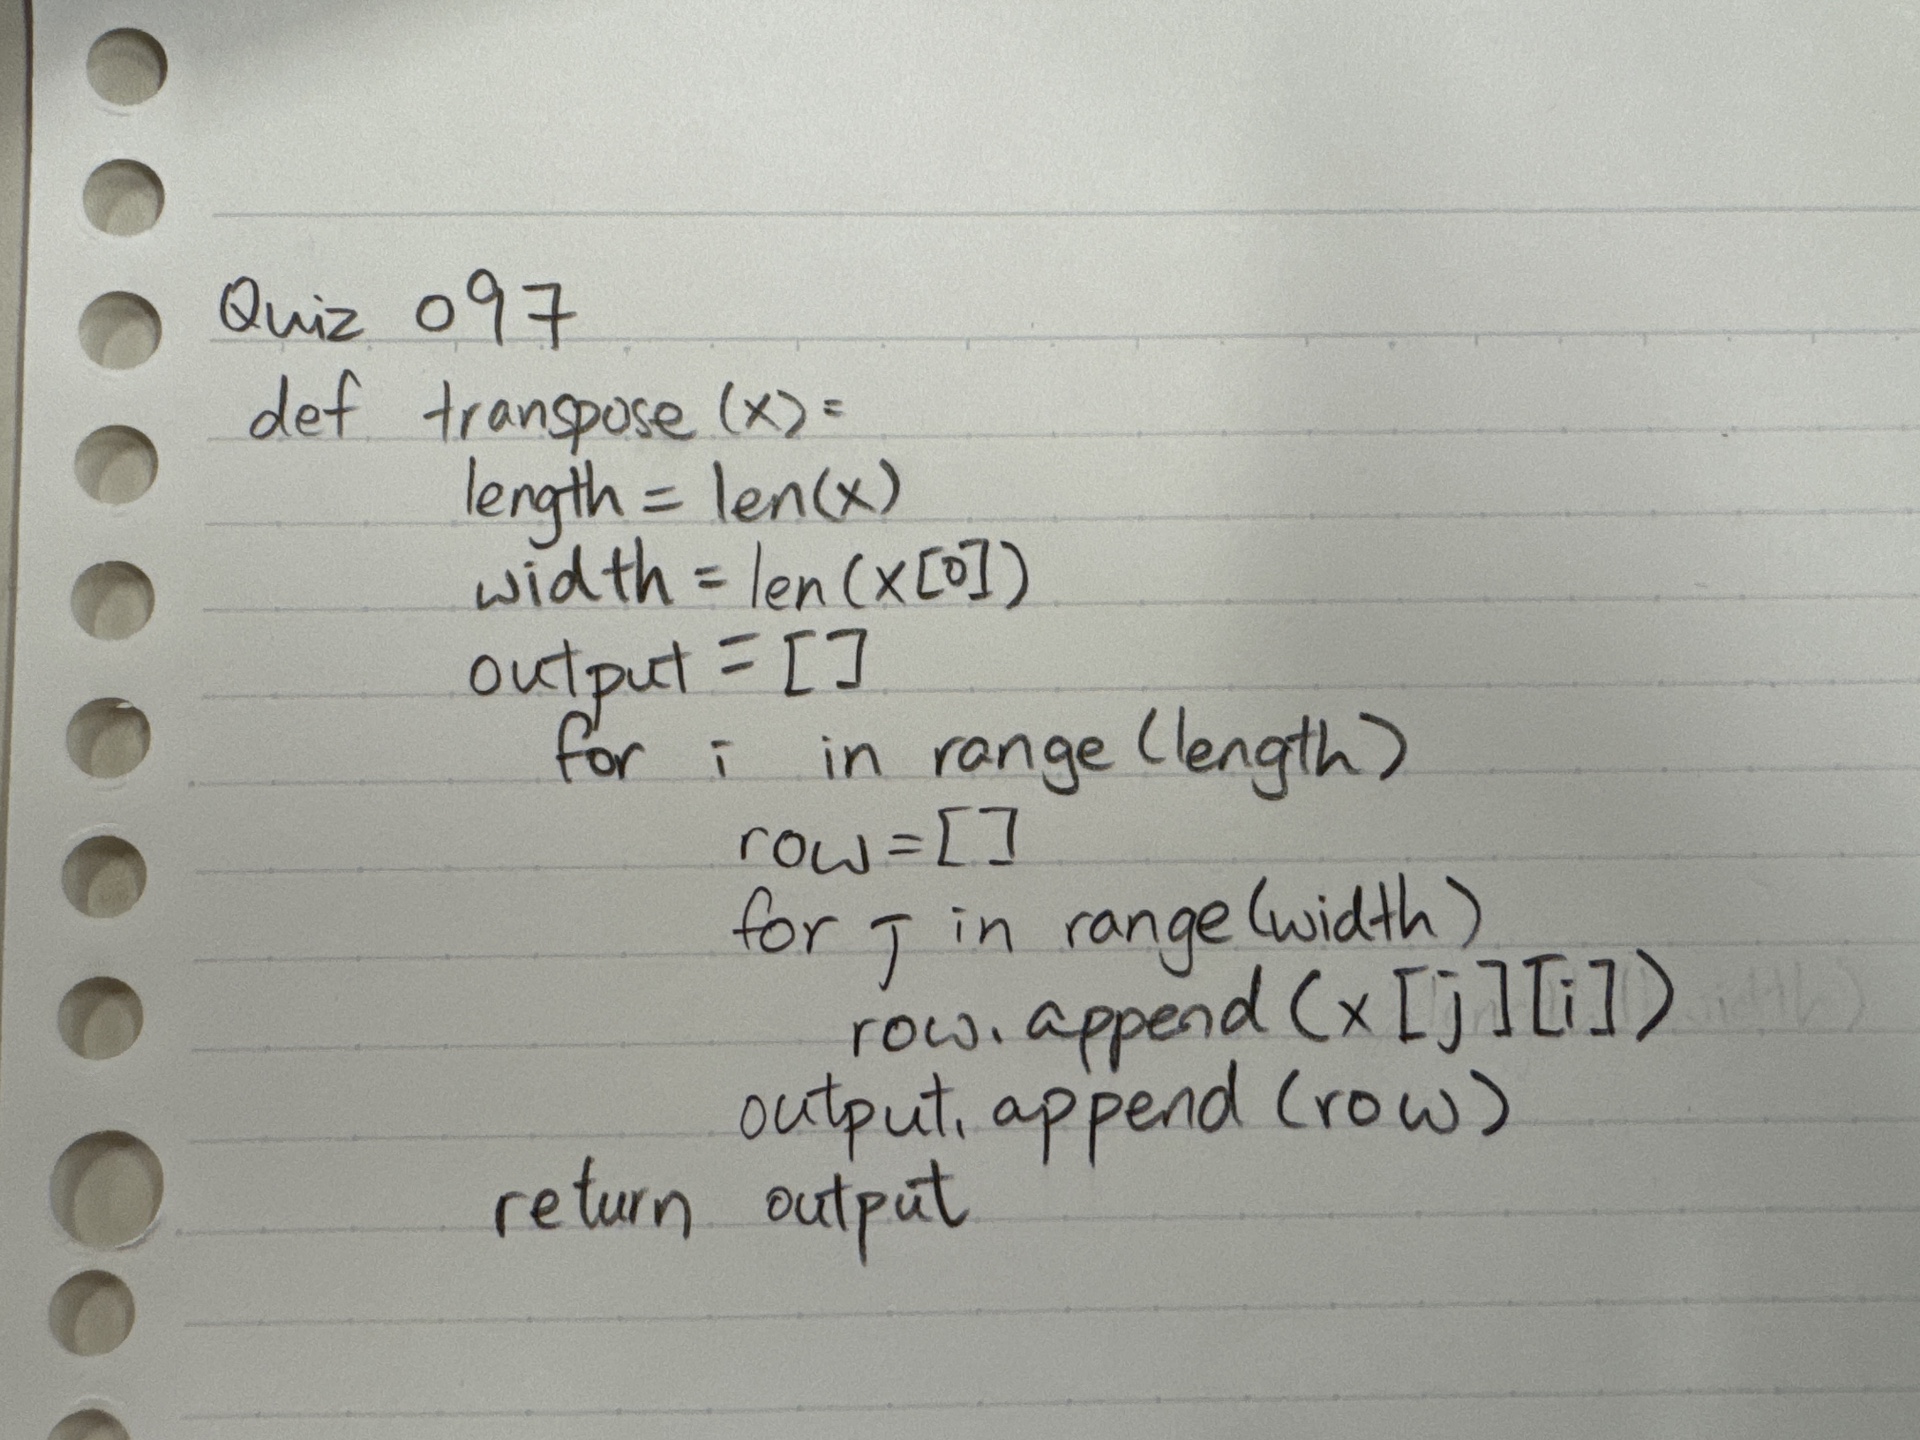 Quiz 097
def transpose (x):
length = len(x)
width = len(x[0])
output = []
for i in range (length)
row = []
for j in range (width)
row. append (x [j] [i])
output. append (row)
return output